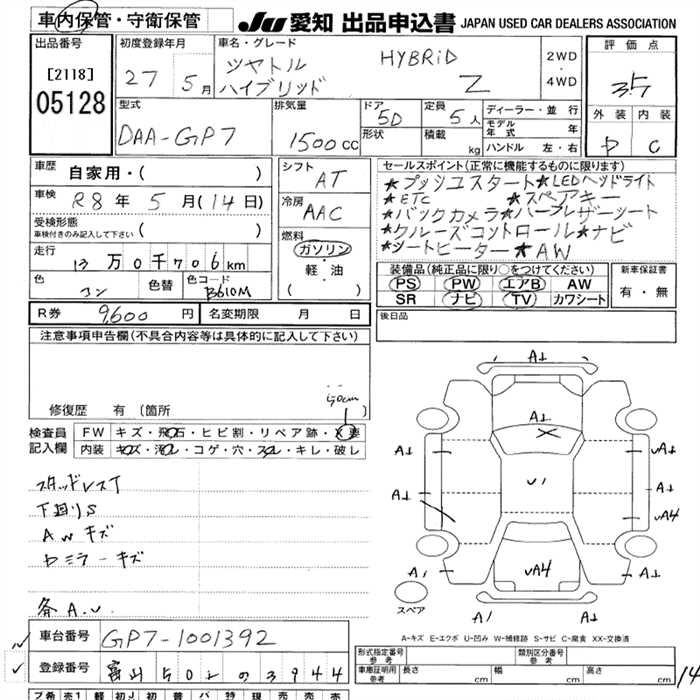 車内保管・守衛保管
JU 愛知 出品申込書 JAPAN USED CAR DEALERS ASSOCIATION
出品番号
[2118]
05128
初度登録年月
27 5月
車名・グレード
HYBRID
ハイブリッド
Z
2WD
4WD
評価点
3.5
外装 内装
C
型式
DAA-GP7
排気量
1500cc
ドア
5D
形状
定員
5人
積載
kg
ディーラー・並行
モデル年式 年
ハンドル 左・右
車歴
自家用・( )
車検
R8年 5月(14日)
受検形態
車検付きのみ記入して下さい ( )
走行
13万0千706km
色
コン
色替
色コード
B610M
シフト
AT
冷房
AAC
燃料
ガソリン
軽・油
( )
セールスポイント(正常に機能するものに限ります)
★プッシュスタート★LEDヘッドライト
★ETC ★スペアキー
★バックカメラ★ハーフレザーシート
★クルーズコントロール★ナビ
★シートヒーター★AW
装備品(純正品に限り○をつけてください)
PS PW エアB AW
SR ナビ TV カワシート
新車保証書
有・無
R券 9,600円
名変期限 月 日
後日品
注意事項申告欄(不具合内容等は具体的に記入して下さい)
修復歴 有 (箇所
50cm
検査員記入欄
FW キズ・飛石・ヒビ割・リペア跡・X要
内装 キズ・汚レ・コゲ・穴・スレ・キレ・破レ
スタッドレスT
下回りS
AWキズ
ミラーキズ
各A.U.
A1
A1
A1
A1
A1
A1
U1
A1
UA4
A1
UA4
A1
スペア
A-キズ E-エクボ U-凹み W-補修跡 S-サビ C-腐食 XX-交換済
車台番号 GP7-1001392
登録番号 富山502の3944
形式指定番号 参考
類別区分番号 参考
車庫証明用 参考
長さ cm
幅 cm
高さ cm
14